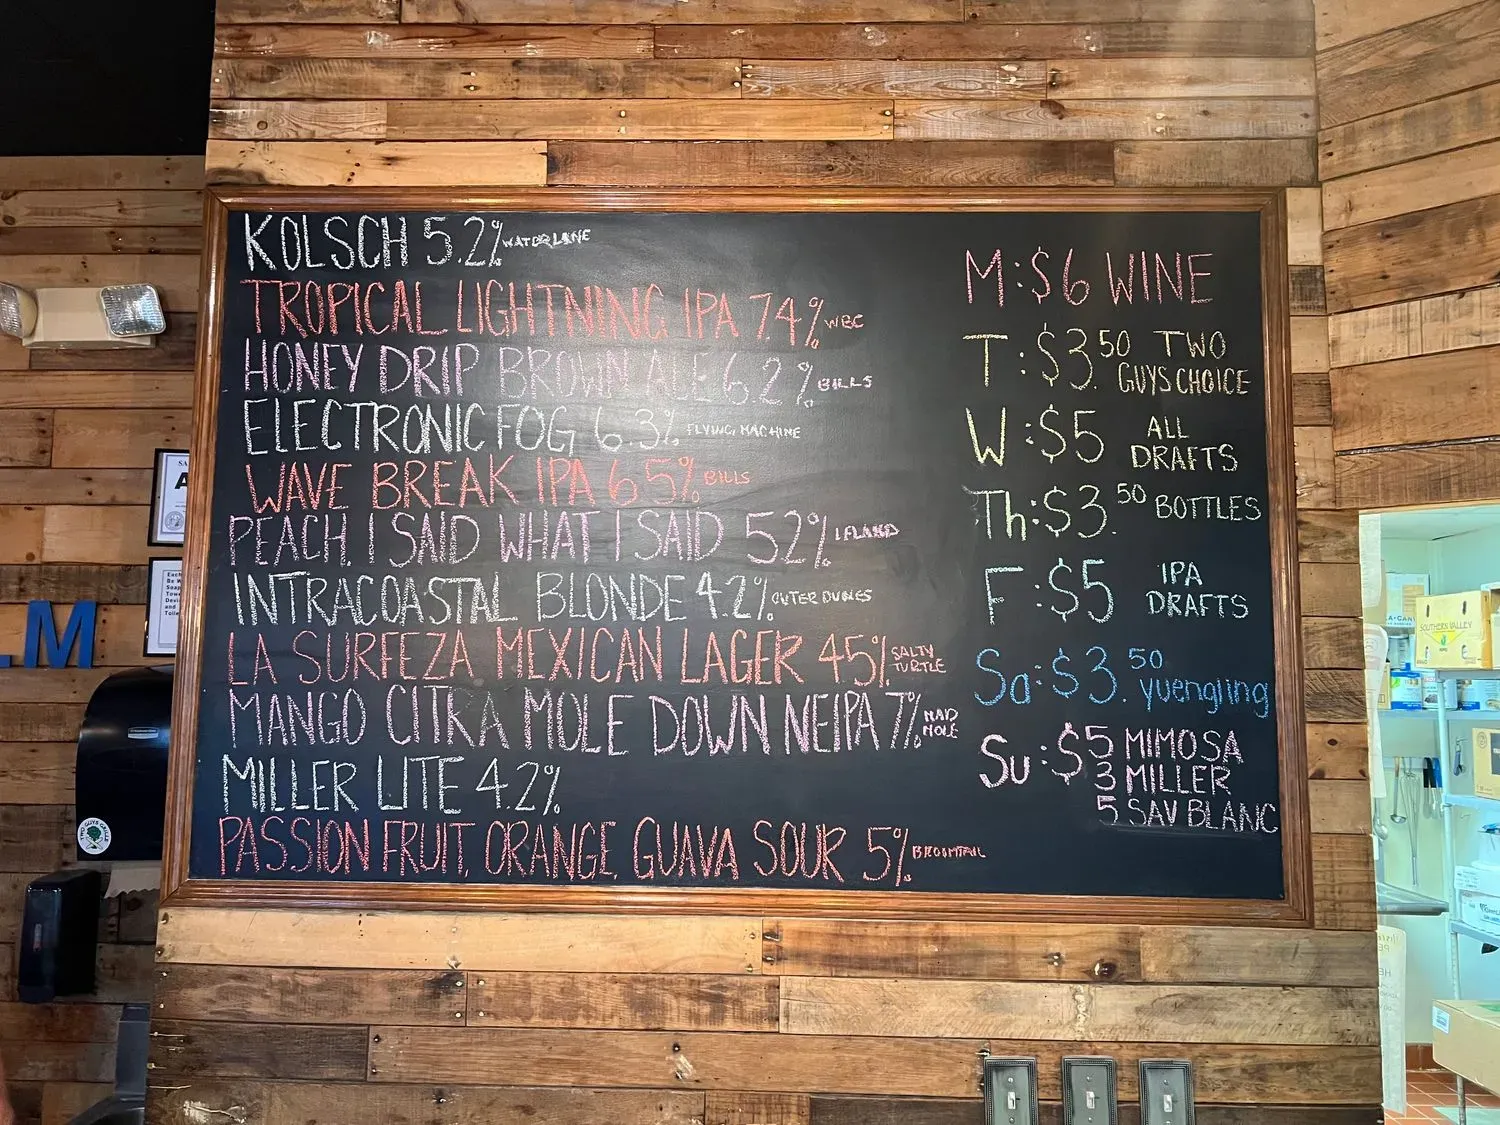 KOLSCH 5.2% WATERLINE
TROPICAL LIGHTNING IPA 7.4% WBC
HONEY DRIP BROWN ALE 6.2% BILLS
ELECTRONIC FOG 6.3% FLYING MACHINE
WAVE BREAK IPA 6.5% BILLS
PEACH. I SAID WHAT I SAID 5.2% LELAND
INTRACOASTAL BLONDE 4.2% OUTER DUNES
LA SURFEZA MEXICAN LAGER 4.5% SALTY
TURTLE
MANGO CITRA MOLE DOWN NEIPA 7% MAD
MOLE
MILLER LITE 4.2%
PASSION FRUIT, ORANGE, GUAVA SOUR 5% BROOMTAIL
M: $6 WINE
T: $3.50 TWO
GUYS CHOICE
W: $5 ALL
DRAFTS
Th: $3.50 BOTTLES
F: $5 IPA
DRAFTS
Sa: $3.50 yuengling
Su: $5 MIMOSA
3 MILLER
5 SAV BLANC
LM
TWO GUYS GRILLE
SOUTHERN VALLEY